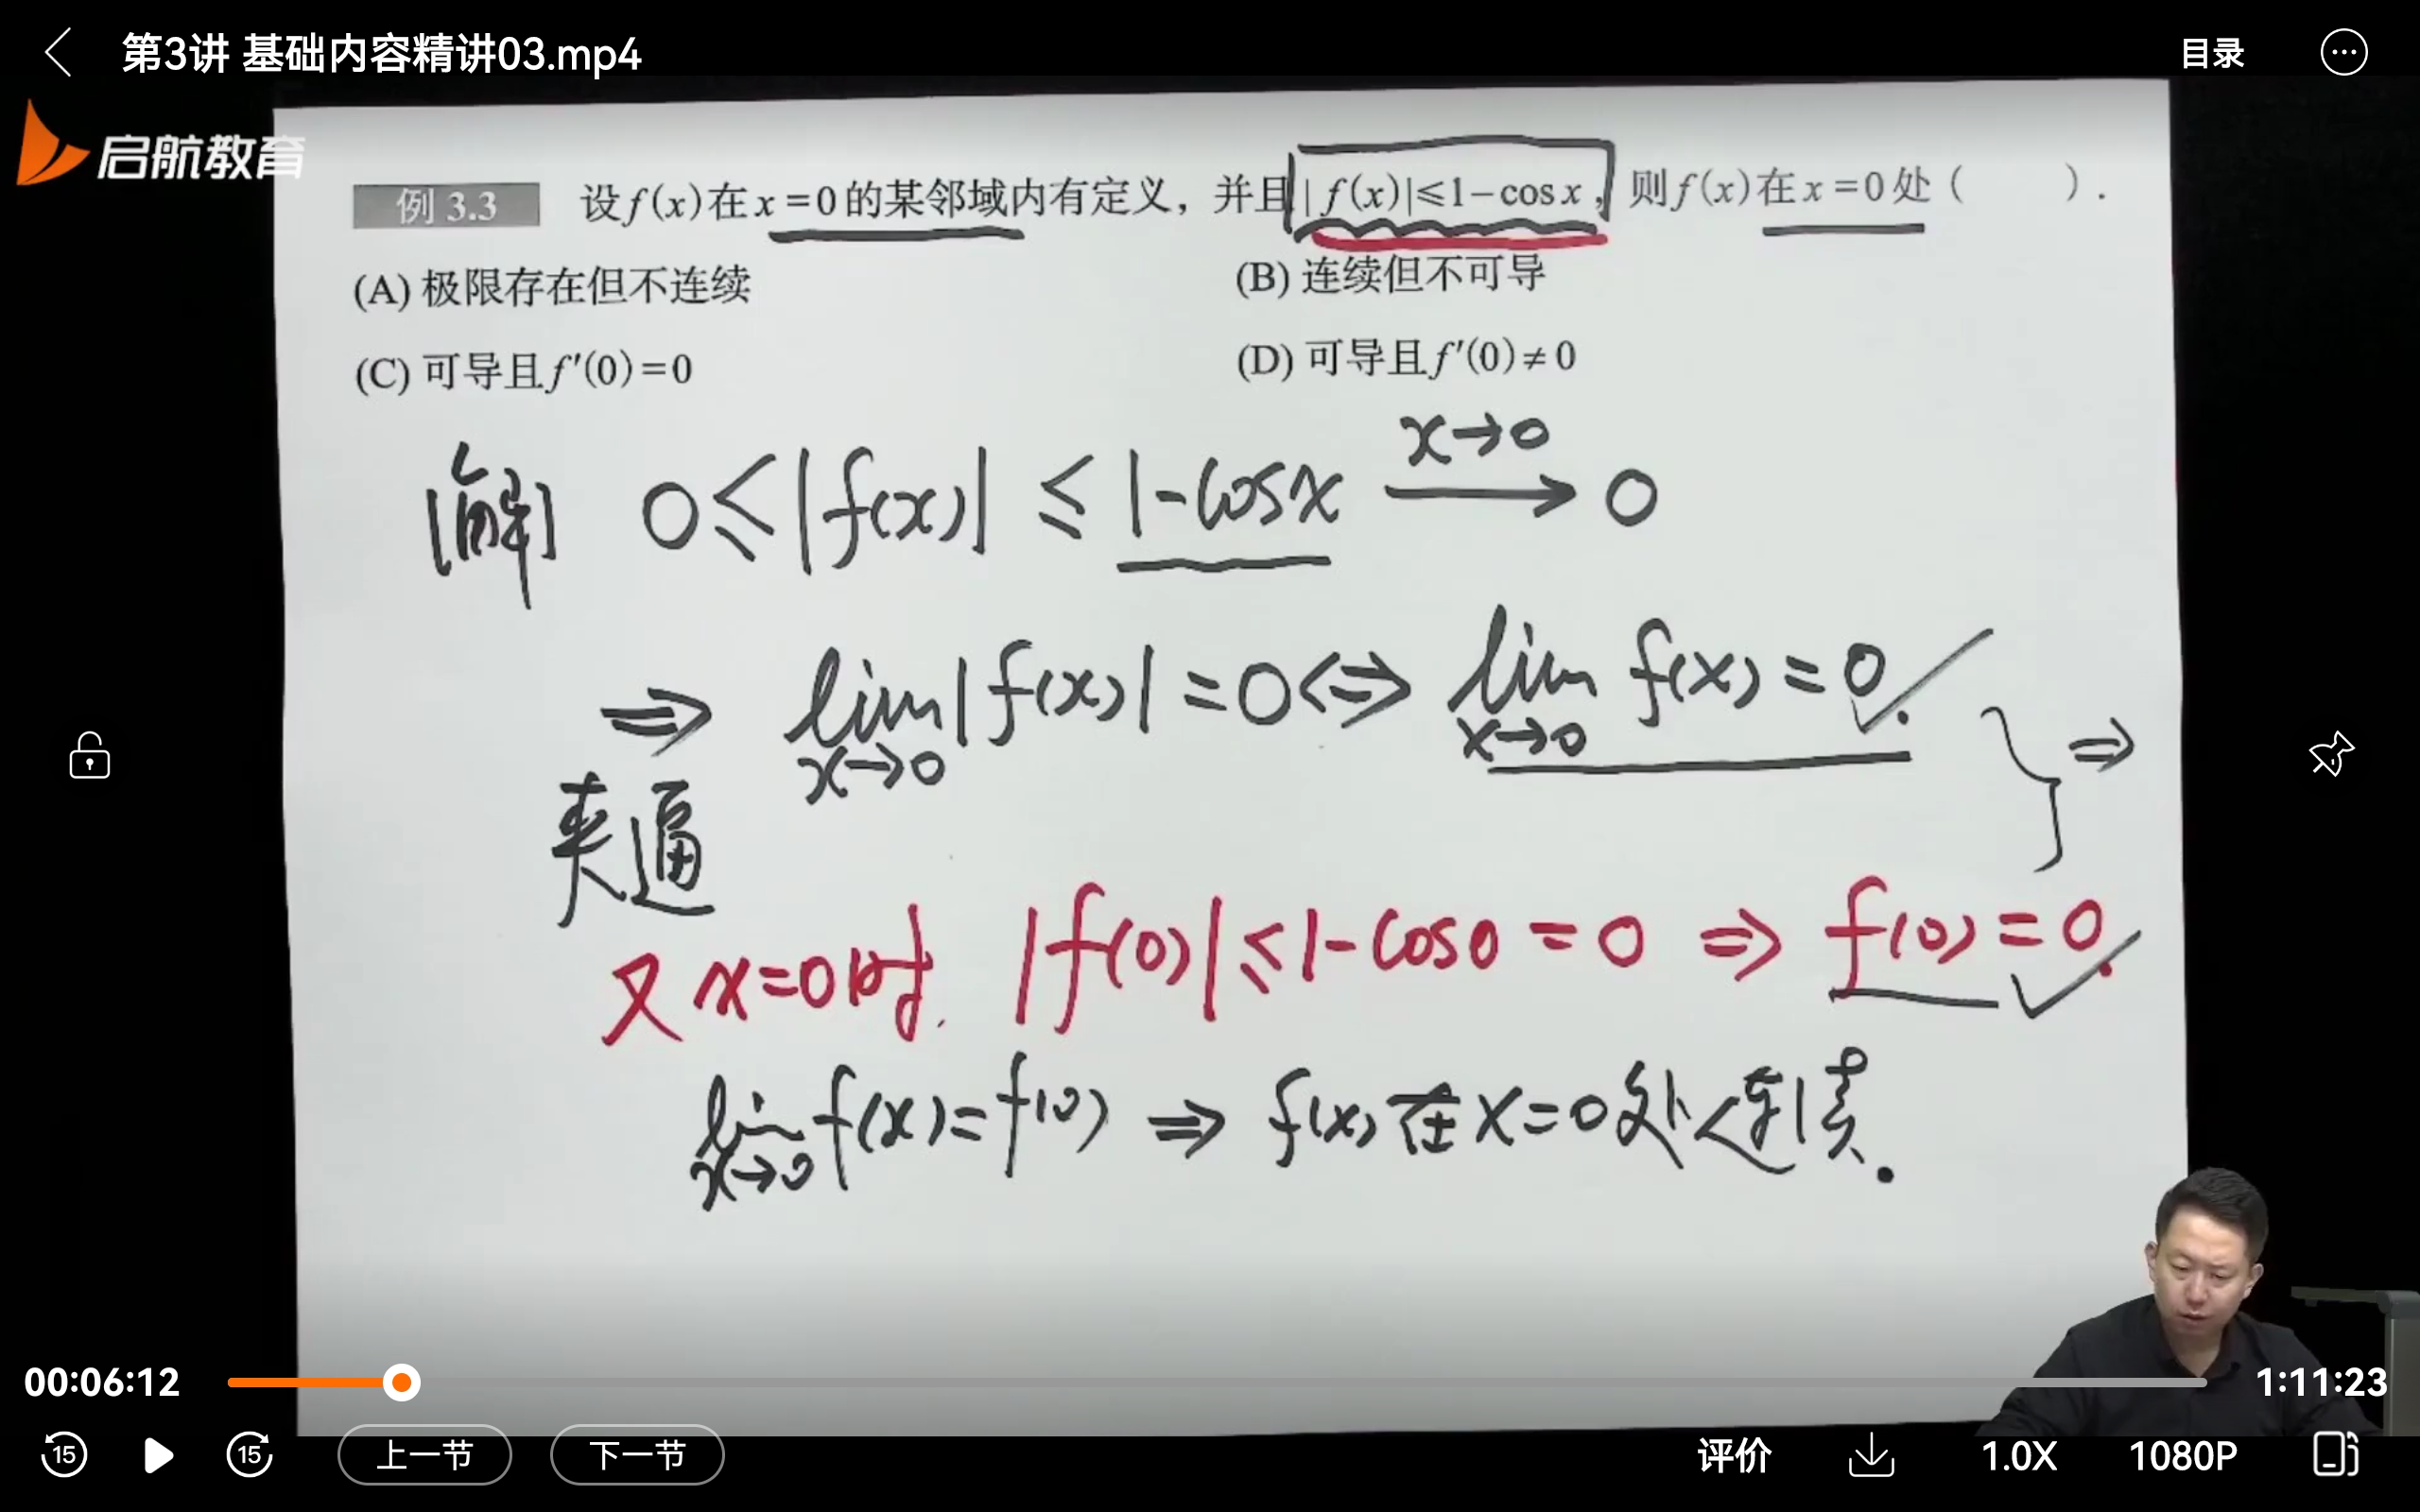 第3讲 基础内容精讲03.mp4
目录
启航教育
例 3.3 设f(x)在x=0的某邻域内有定义，并且|f(x)|⩽1-cosx，则f(x)在x=0处（ ）.
(A) 极限存在但不连续 (B) 连续但不可导
(C) 可导且f′(0)=0 (D) 可导且f′(0)≠0
[解] 0≤|f(x)|≤1-cosx x→0 → 0
⇒ lim x→0 |f(x)|=0 ⇔ lim x→0 f(x)=0. } ⇒
夹逼
又x=0时, |f(0)|≤1-cos0=0 ⇒ f(0)=0.
lim x→0 f(x)=f(0) ⇒ f(x)在x=0处连续.
00:06:12 1:11:23
15 15 上一节 下一节 评价 1.0X 1080P